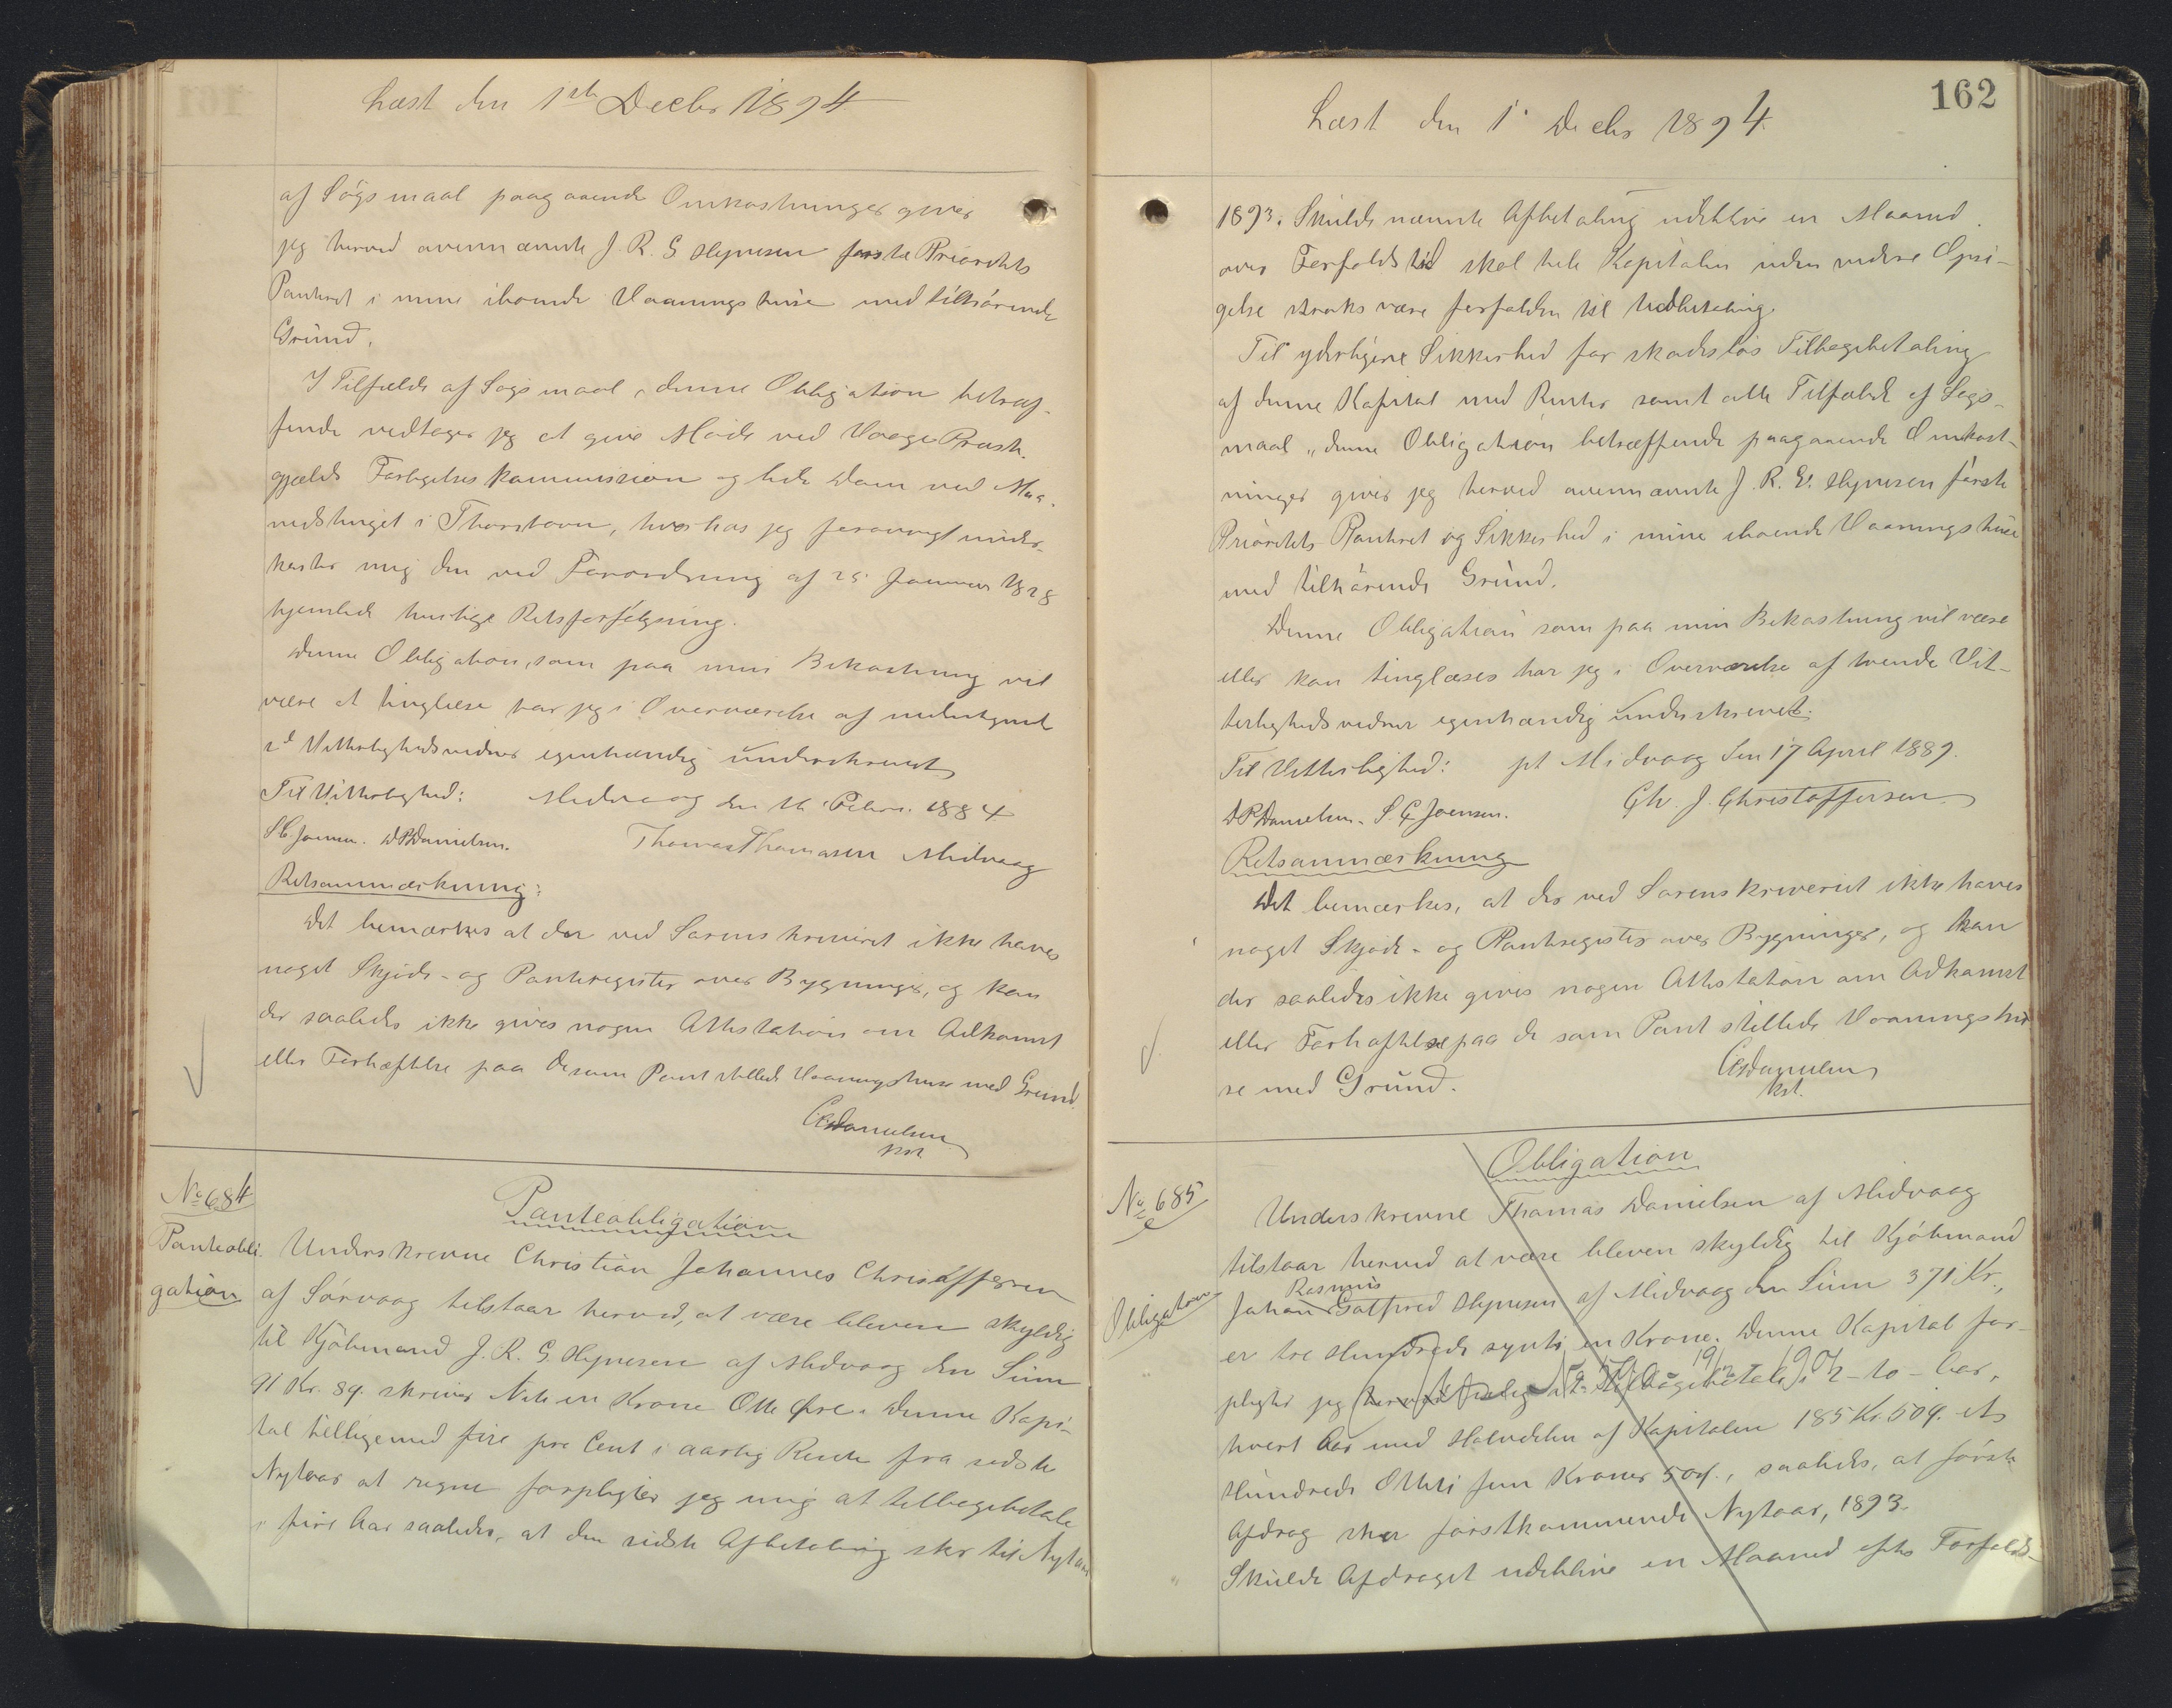 Læst den 1ste Decbr 1894
af Søgsmaal paagaaende Omkostninger giver
jeg herved ovennævnte J. R. G Heynesen første Prioritets
Panteret i mine iboende Vaaningshuse med tilhörende
Grund.
I Tilfælde af Søgsmaal, denne Obligation betræf-
fende vedtager jeg at give Møde ved Vaagø Præste-
gjælds Forligelseskommission og lide Dom ved
i Thorshavn, jeg under-
kaster mig den ved Forordning af 25 Januar 1828
hjemlede hurtige Retsforfølgning.
Denne Obligation, som paa min Bekostning vil
være at tinglæse har jeg i Overværelse af
2de Vitterlighedsvidner egenhændig underskrevet
Til Vitterlighed: Midvaag den 16 Febru. 1884
S C. Joensen. DPDanielsen. Thomas Thomasen Midvaag
Retsanmærkning:
Det bemærkes at der ved Sorenskriveriet ikke haves
noget Skjøde- og Panteregister over Bygninger, og kan
der saaledes ikke gives nogen Attestation om Adkomst
eller Forhæftelse paa de som Pant stillede Vaaningshuse med Grund.
Danielsen
kst
No 684
Panteobligation
Panteobli-
gation
Underskrevne Christian Johannes Christoffersen
af Sørvaag tilstaar herved, at være bleven skyldig
til Kjöbmand J. R. G. Heynesen af Midvaag den Sum
91 Kr. 8 Ø. skriver Niti en Krone Otte Øre. Denne Kapi-
tal tilligemed fire pro Cent i aarlig Rente fra sidste
Nytaar at regne forpligter jeg mig at tilbagebetale
i fire Aar saaledes, at den sidste Afbetaling sker til Nytaar
162
Læst den 1' Decbr 1894.
1893. Skulde nævnte Afbetaling udeblive en Maaned
over Forfaldstid skal hele Kapitalen uden videre Opsi-
gelse straks være forfalden til Udbetaling.
Til yderligere Sikkerhed for skadesløs Tilbagebetaling
af denne Kapital med Renter samt alle Tilfælde af Søgs-
maal, denne Obligation betræffende paagaaende Omkost-
ninger giver jeg herved ovennævnte J. R. G. Heynesen første
Prioritets Panteret og Sikkerhed i mine iboende Vaaningshuse
med tilhörende Grund.
Denne Obligation som paa min Bekostning vil være
eller kan tinglæses har jeg i Overværelse af tvende Vit-
terlighedsvidner egenhændig underskrevet.
Til Vitterlighed: pt Midvaag den 17 April 1889.
DPDanielsen. S. C Joensen. Chr. J. Christoffersen
Retsanmærkning
Det bemærkes, at der ved Sorenskriveriet ikke haves
noget Skjøde- og Panteregister over Bygninger, og kan
der saaledes ikke gives nogen Attestation om Adkomst
eller Forhæftelse paa de som Pant stillede Vaaningshu-
se med Grund.
Danielsen
kst.
No 685
Obligation
Underskrevne Thomas Danielsen af Midvaag
tilstaar herved at være bleven skyldig til Kjöbmand
Obligation
Rasmus
Johan Gotfred Heynesen af Midvaag den Sum 371 Kr.,
er tre Hundrede syvti en Krone. Denne Kapital for-
pligter jeg at tilbagebetale i 2 - to - Aar,
hvert Aar med Halvdelen af Kapitalen 185 Kr. 50 Ø. et
Hundrede Otteti fem Kroner 50 Ø., saaledes, at første
Afdrag sker førstkommende Nytaar, 1893.
Skulde Afdraget udeblive en Maaned efter Forfalds-